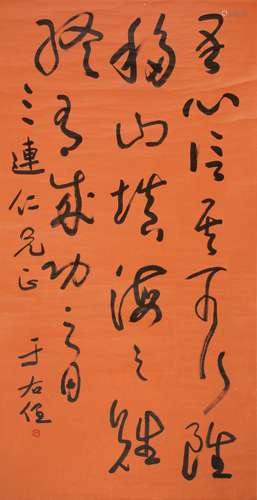 吾心信其可行雖
移山填海之難
終有成功之日
三連仁兄正
于右任